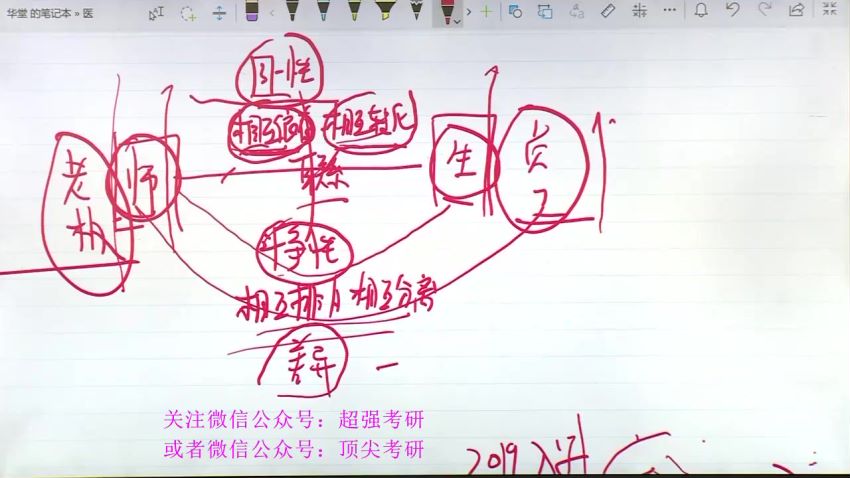 华堂 的笔记本 » 医
同一性
相互依赖 相互转化
老 师 联系 生 员
斗争性
相互排斥 相互分离
差异
关注微信公众号：超强考研
或者微信公众号：顶尖考研
2019 入